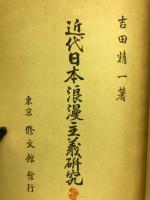 吉田精一著
近代日本浪漫主義研究
東京 修文館 發行